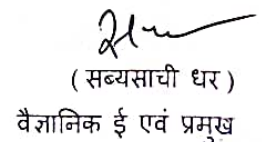 ( सब्यसाची धर )
वैज्ञानिक ई एवं प्रमुख